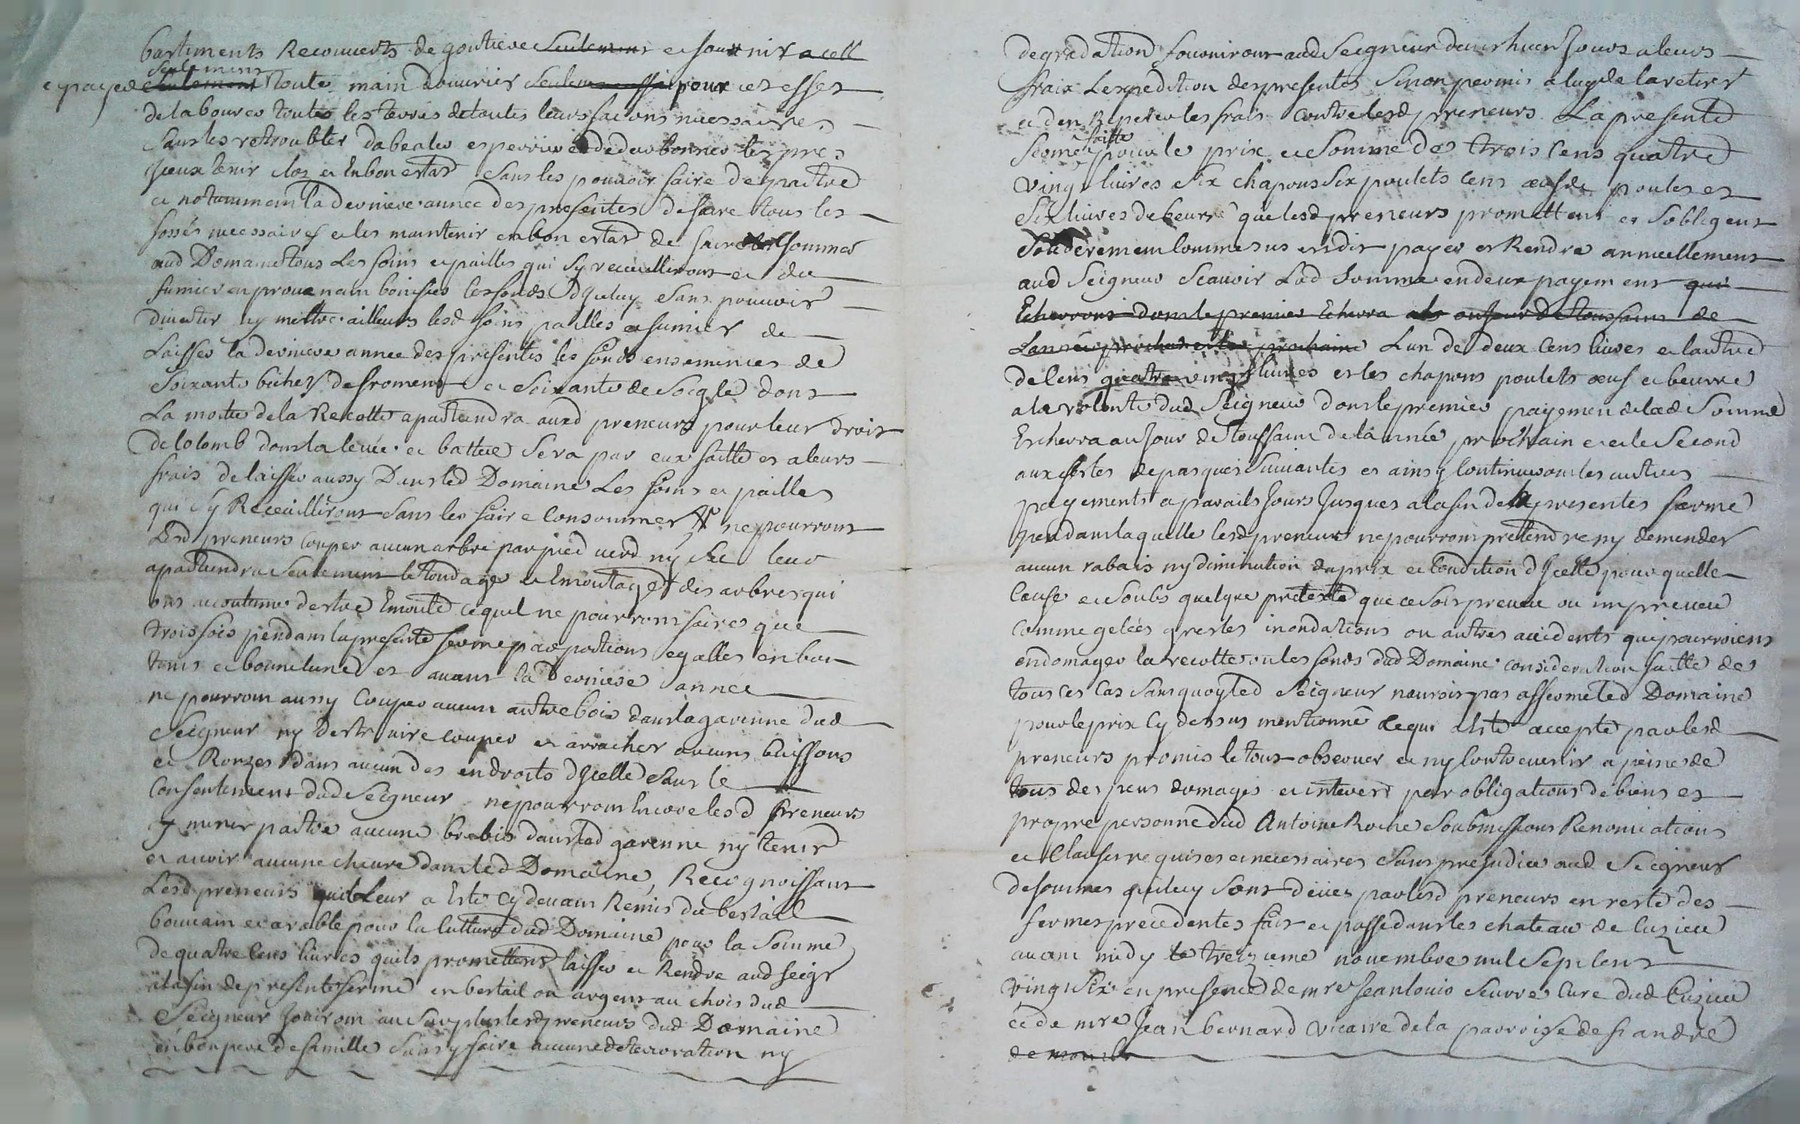 bastiments Recouverts de goutiere seulement et fournir a cell
et payer seulement toute main douvrier pour cet effet
de labourer toutes les terres de toutes leurs façons necessaires
sans les retroubler dabeales
yceux tenir clos et en bon estat sans les pouvoir faire depaitre
et notamment la derniere annee des presentes de faire tous les
fossés necessaires et les maintenir en bon estat de faire consommer
aud Domaine tous les foins et pailles qui sy recueilliront et du
fumier en provenant bonifier les fonds dyceluy sans pouvoir
divertir ny mettre ailleurs lesd foins pailles et fumier de
Laisser la derniere annee des presentes les fonds ensemences de
Soixante bichets de froment et soixante de Seigle dont
La moitie de la Recolte apartiendra ausd preneurs pour leur droit
de colomb dont la levée et batture sera par eux faitte et a leurs
frais de laisser aussy Dans led Domaine Les foins et pailles
qui sy Receuilliront sans les faire Consommer ne pourront
Lesd preneurs couper aucun arbre par pied verd ny sec leur
apartiendra seulement le tondage et emontage des arbres qui
ont accoutume destre Emonté ce quil ne pourront faires que
trois fois pendant la presente ferme par portions egalles en bon
tems et bonne lune et avant la derniere annee
ne pourront aussy Couper aucun autre bois dans la garenne dud
Seigneur ny destruire couper et arracher aucuns buissons
et Ronzes dans aucun des endroits dycelle sans le
Consentement dud Seigneur ne pourront Encore lesd preneurs
y mener paitre aucune brebis dans lad garenne ny tenir
et avoir aucune chevre dans led Domaine, Recognoissant
Lesd preneurs quil leur a Esté Cy devant Remis du bestail
bouvain et arable pour la culture dud Domaine pour la Somme
de quatre Cens livres quils promettent laisser et Rendre aud seigr
a la fin de presente ferme en bestail ou argent au choix dud
Seigneur Jouiront au Surplus lesd preneurs dud Domaine
en bon pere de famille sans y faire aucune deterioration ny
degradation fourniront aud Seigneur dans huit Jours a leurs
fraix Lexpedition des presentes sinon permis a luy de la retirer
et den Repeter les frais contre lesd preneurs. La presente
ferme faitte pour le prix et Somme de trois Cens quatre
vingt livres six chapons six poulets cent œufs de poules et
Six livres de beurre que lesd preneurs promettent et sobligent
Solidairement Comme sus est dit payer et Rendre annuellement
aud Seigneur Scavoir Lad Somme en deux payement qui
Echerront dont le premier Echerra au jour de toussains de
Lannée prochaine Lun de deux Cens livres et lautre
de Cens quatre vingt livres et les chapons poulets œufs et beurre
a la volonté dud Seigneur dont le premier payement de lad Somme
Escherra au Jour de toussaint de lannée prochain et et le Second
aux festes de pasques suivantes et ainsy Continueront les autres
payements a pareils Jours Jusques a la fin de la presentes ferme
pendant laquelle lesd preneurs ne pourront pretendre ny demender
aucun rabais ny diminution du prix et Condition dycelle pour quelle
Cause et soubs quelque pretexte que ce soit preveu ou impreveu
Comme gelées gresles inondations ou autres accidents qui pourroient
endomager la recolte ou les fonds dud Domaine consideration faitte de
tous ces Cas sans quoy led Seigneur nauroit pas affermé led Domaine
pour le prix Cy dessus mentionné ce qui a Esté accepté par lesd
preneurs promis le tout observer et ny Contrevenir a peine de
tous despens domages et interest par obligations de biens et
propre personne dud Antoine Roche Soubmissions Renonciations
et Clauses requises et necessaires sans prejudice aud Seigneur
de sommes qui luy sont deües par lesd preneurs en reste des
fermes precedentes fait et passé dans les chateau de Cuzieu
avant midy le treizieme novembre mil Sept Cens
vingt Six en presence de mre Jean louis Seurre Cure dud Cuzieu
et de mre Jean bernard vicaire de la parroisse de st andré